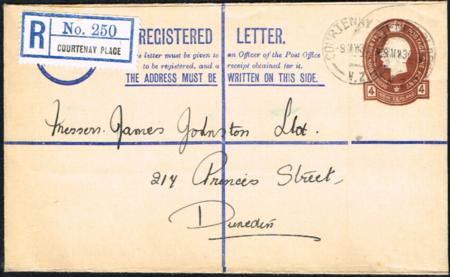 R No. 250
COURTENAY PLACE
REGISTERED LETTER.
letter must be given to an Officer of the Post Office
to be registered, and a receipt obtained for it.
THE ADDRESS MUST BE WRITTEN ON THIS SIDE.
COURTENAY
N.Z.
4 4
Messrs. James Johnston Ltd.
217 Princes Street,
Dunedin